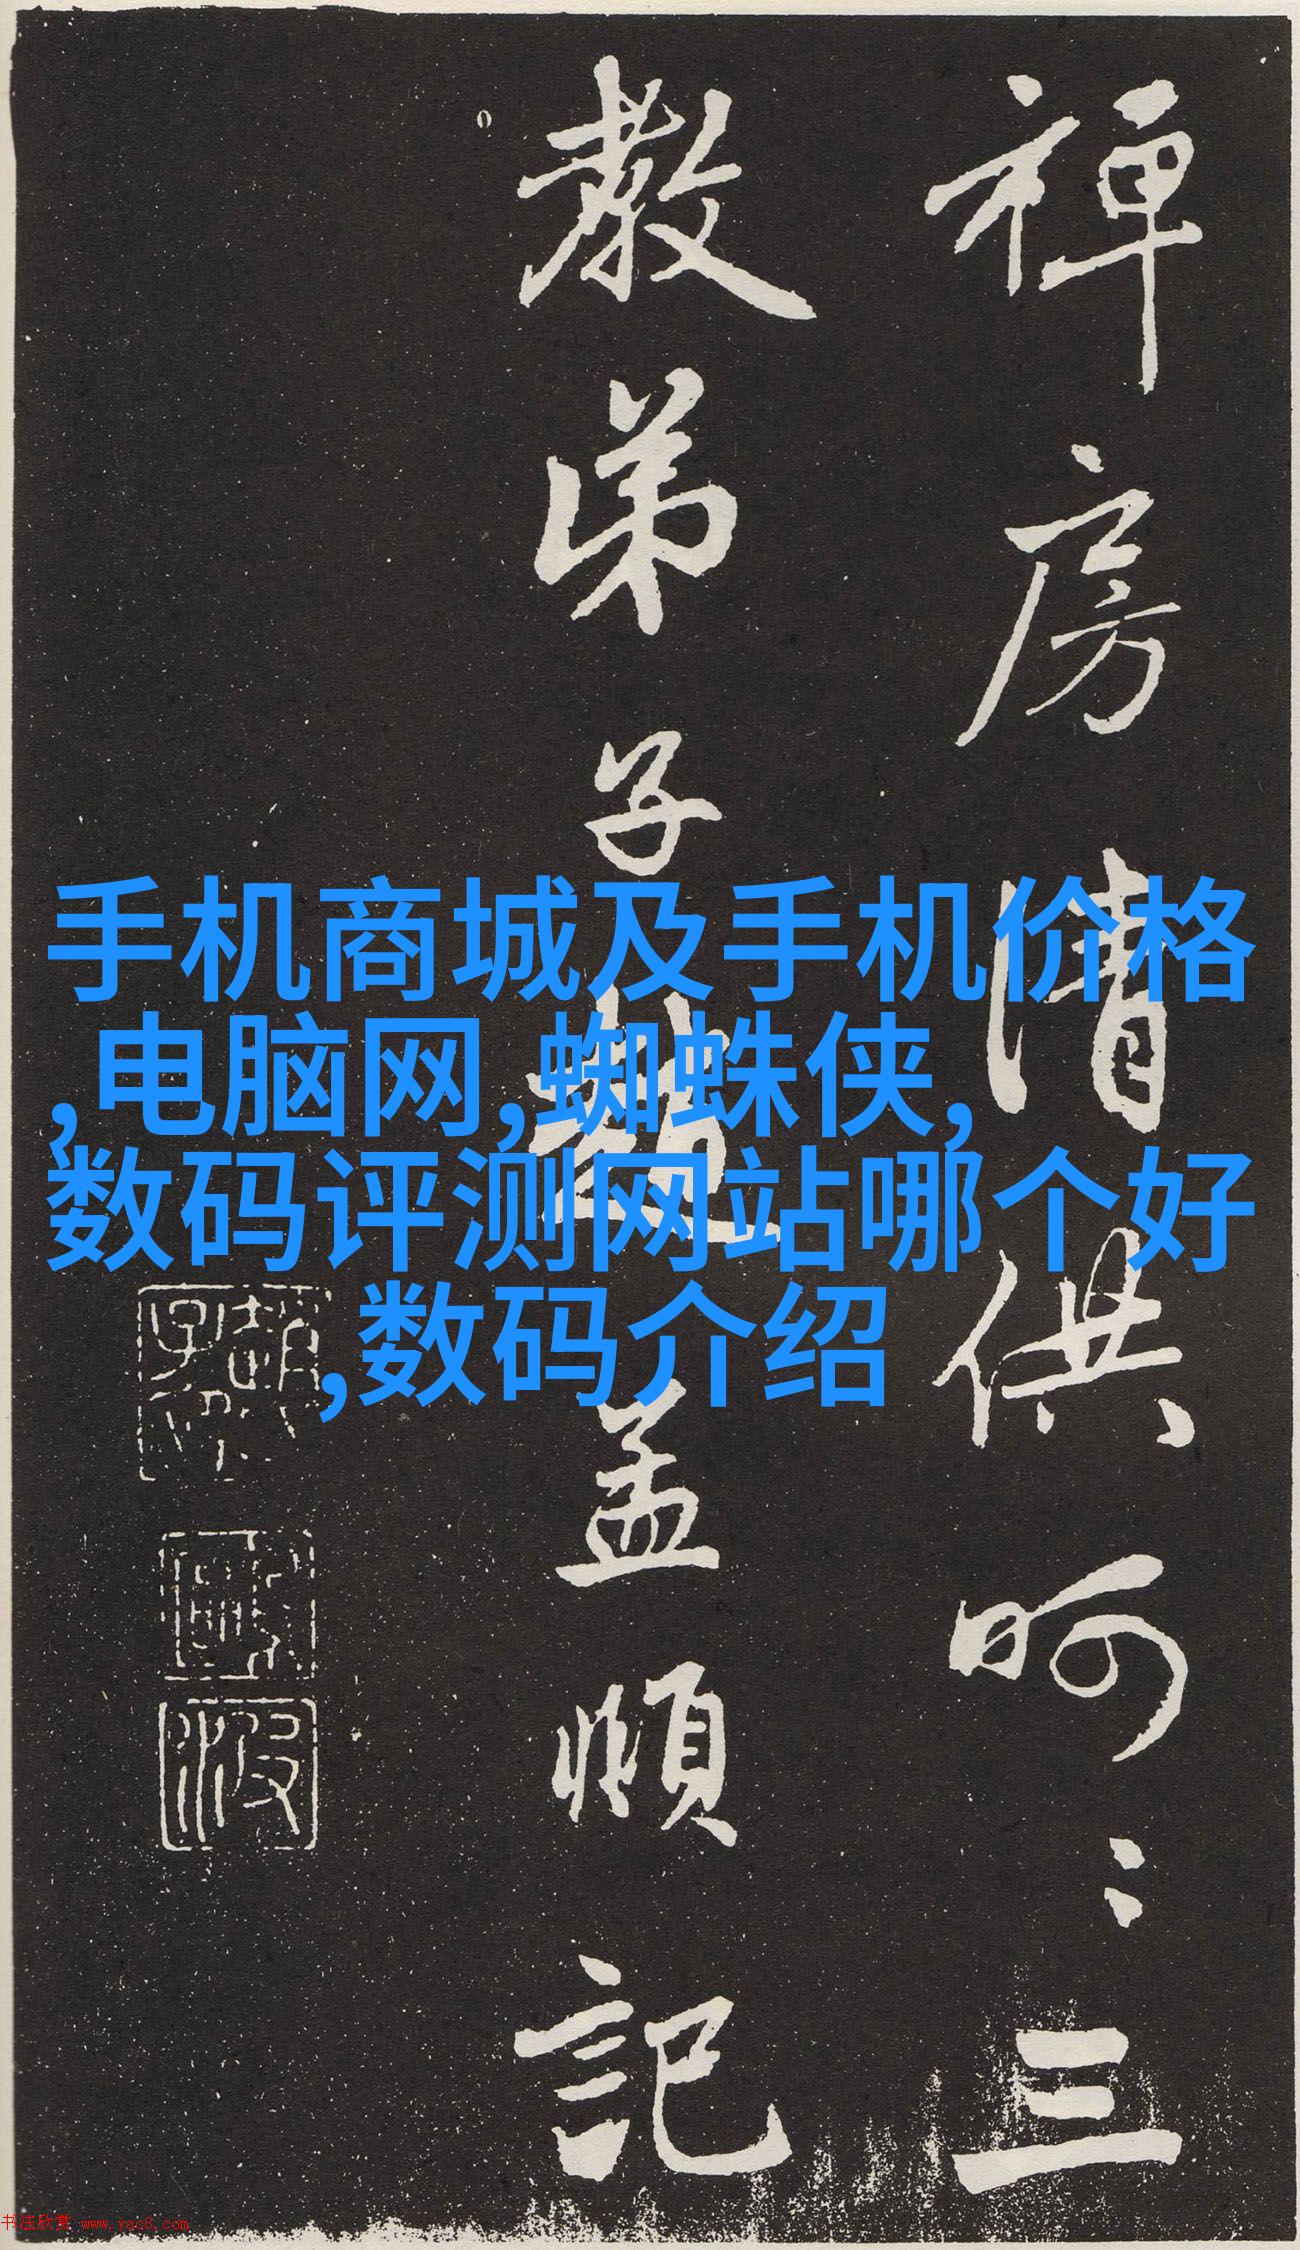 禅房清供呵〻三
教弟子趙孟頫記
手机商城及手机价格
,电脑网,蜘蛛侠,
数码评测网站哪个好
,数码介绍
书法欣赏 www.yac8.com